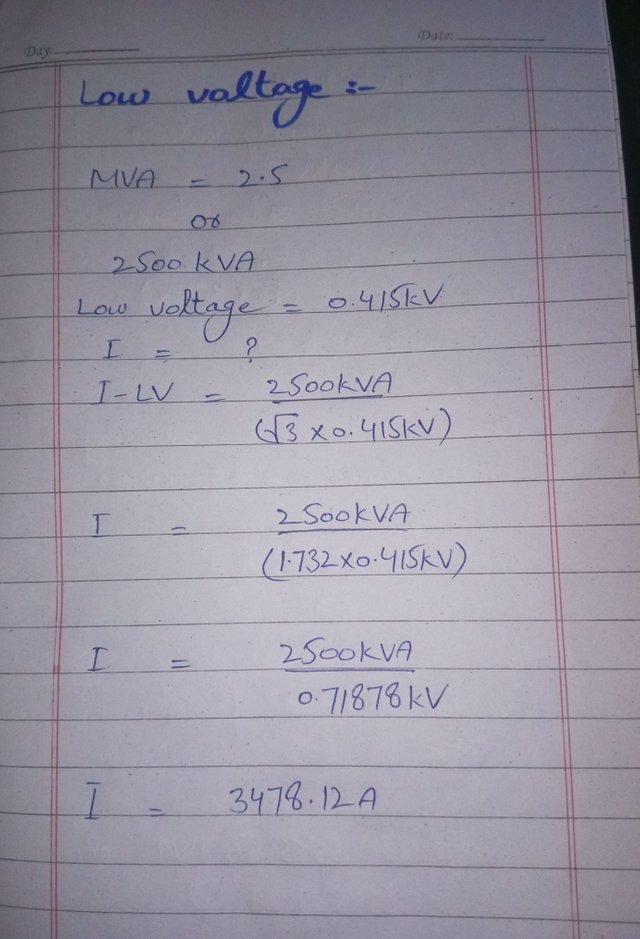 Day:
Date:
Low voltage :-
MVA = 2.5
or
2500 kVA
Low voltage = 0.415kV
I = ?
I-LV = 2500kVA
(√3 x 0.415kV)
I = 2500kVA
(1.732x0.415kV)
I = 2500kVA
0.71878kV
I = 3478.12A